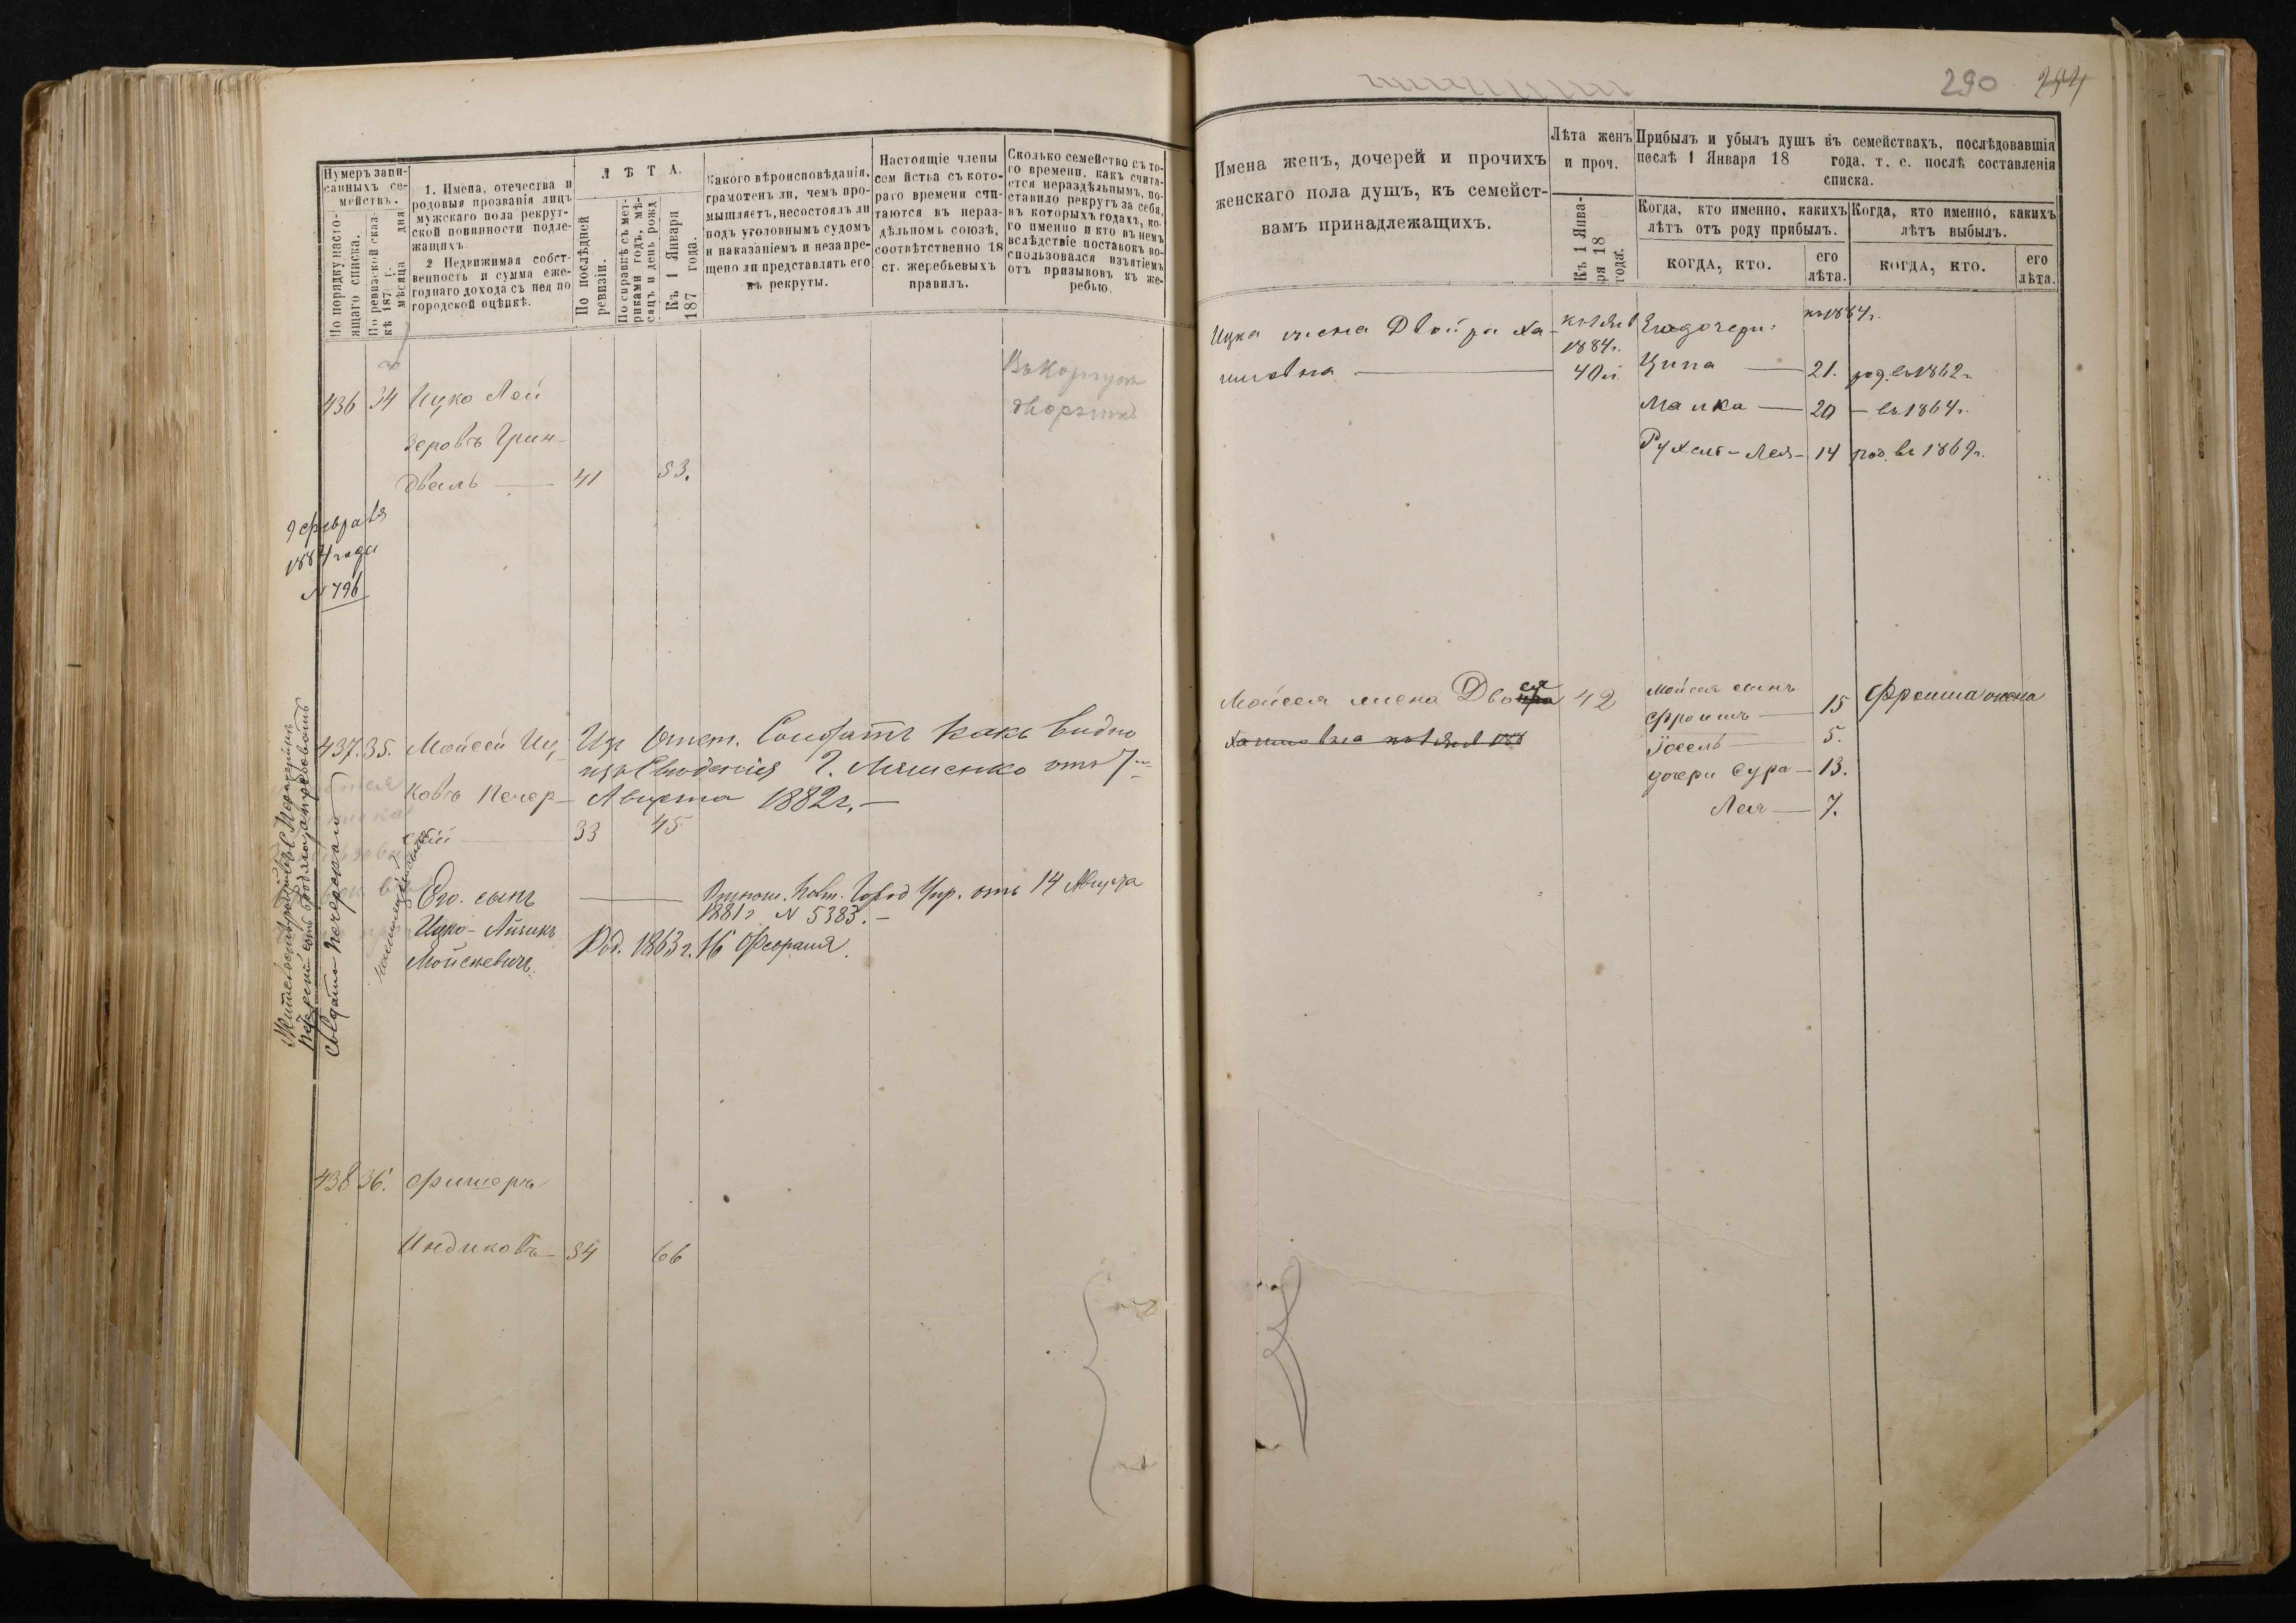 Нумеръ запи-
санныхъ се-
мействъ.
По порядку насто-
ящаго списка.
По ревизской сказ-
кѣ 187 г.
мѣсяца дня
1. Имена, отечества и
родовыя прозванія лицъ
мужскаго пола рекрут-
ской повинности подле-
жащихъ
2 Недвижимая собст-
венность и сумма еже-
годнаго дохода съ нея по
городской оцѣнкѣ.
ЛѢТА.
По послѣдней
ревизіи.
По справкѣ съ мет-
риками годъ, мѣ-
сяцъ и день рожд
Къ 1 Января
187 года.
Какого вѣроисповѣданія,
грамотенъ ли, чемъ про-
мышляетъ, несостоялъ ли
подъ уголовнымъ судомъ
и наказаніемъ и незапре-
щено ли представлять его
въ рекруты.
Настоящіе члены
сем йства съ кото-
раго времени счи-
таются въ нераз-
дѣльномъ союзѣ,
соотвѣтственно 18
ст. жеребьевыхъ
правилъ.
Сколько семейство съ то-
го времени, какъ счита-
ется нераздѣльнымъ, по-
ставило рекрутъ за себя,
въ которыхъ годахъ, ко-
го именно и кто въ немъ
вслѣдствіе поставокъ во-
спользовался изъятіемъ
отъ призывовъ къ же-
ребью.
436 34 Ицко Лей
зеровъ Грин-
дваль — 41 53.
9 февраля
1884 года
N 796
437. 35. Мойсей Иц
ковъ Печер-
скій 33 45
какъ видно
Августа 1882 г. —
Его сынъ
Ицко-Айзикъ
Мойсеевичъ
Город Упр. отъ 14 Августа
1881 г N 5383. —
Род. 1863 г. 16 Февраля.
438 36. Фишеръ
Индиковъ — 54 66
290
Имена женъ, дочерей и прочихъ
женскаго пола душъ, къ семейст-
вамъ принадлежащихъ.
Лѣта женъ
и проч.
Къ 1 Янва-
ря 18
года.
Прибылъ и убылъ душъ въ семействахъ, послѣдовавшія
послѣ 1 Января 18 года, т. е. послѣ составленія
списка.
Когда, кто именно, какихъ
лѣтъ отъ роду прибылъ.
КОГДА, КТО.
его
лѣта.
Когда, кто именно, какихъ
лѣтъ выбылъ.
КОГДА, КТО.
его
лѣта.
Ицка жена Двойра Ха-
имовна —
къ 1 Янв
1884 г.
40 л.
Его дочери: къ 1884 г.
Ципа — 21. род. въ 1862 г
Малка — 20 — въ 1864 г.
Рухля-Лея — 14 род. въ 1869 г.
Мойсея жена Двося 42
Мойсея сынъ
Фроимъ — 15
Іосель — 5.
дочери Сура — 13.
Лея — 7.
Фроима жена